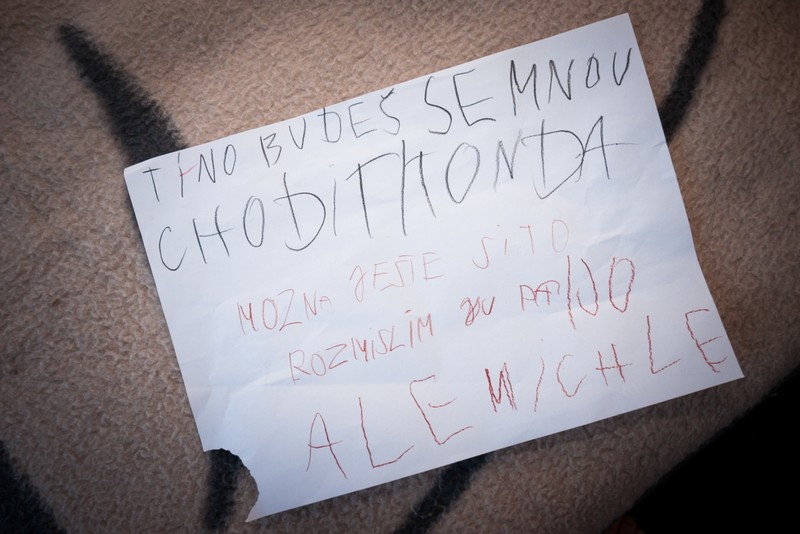 TÍNO BUDEŠ SE MNOU
CHODIT HONDA
MOZNA JESTE SI TO
ROZMISLIM JDU NA
ALE MICHLE